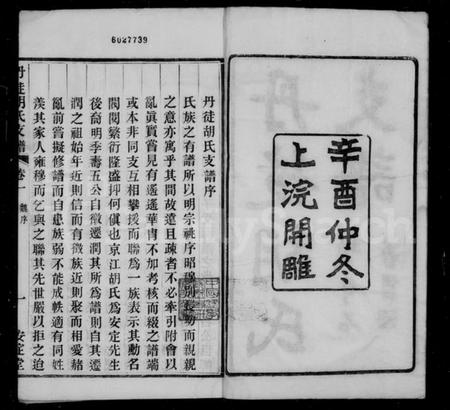 6027739
辛酉仲冬
上浣開雕
丹徒胡氏支譜序
氏族之有譜所以明宗祧序昭穆別長幼而親親
之意亦寓乎其間故遠且疎者不必牽引附會以
亂眞實嘗見有遙遙華冑不加考核而綴之譜端
或本非同支互相攀援而聯為一族表示其動名
閥閱繁衍隆盛抑何傎也京江胡氏為安定先生
後裔明季壽五公自徽遷潤其所為譜則自其遷
潤之祖始年近則信而有徵族近則聚而相愛赭
亂前嘗擬修譜而自患族弱不能成帙適有同姓
羨其家人雍穆而乞與之聯其先世嚴以拒之迨
丹徒胡氏支譜
卷一
魏序
一
安定堂